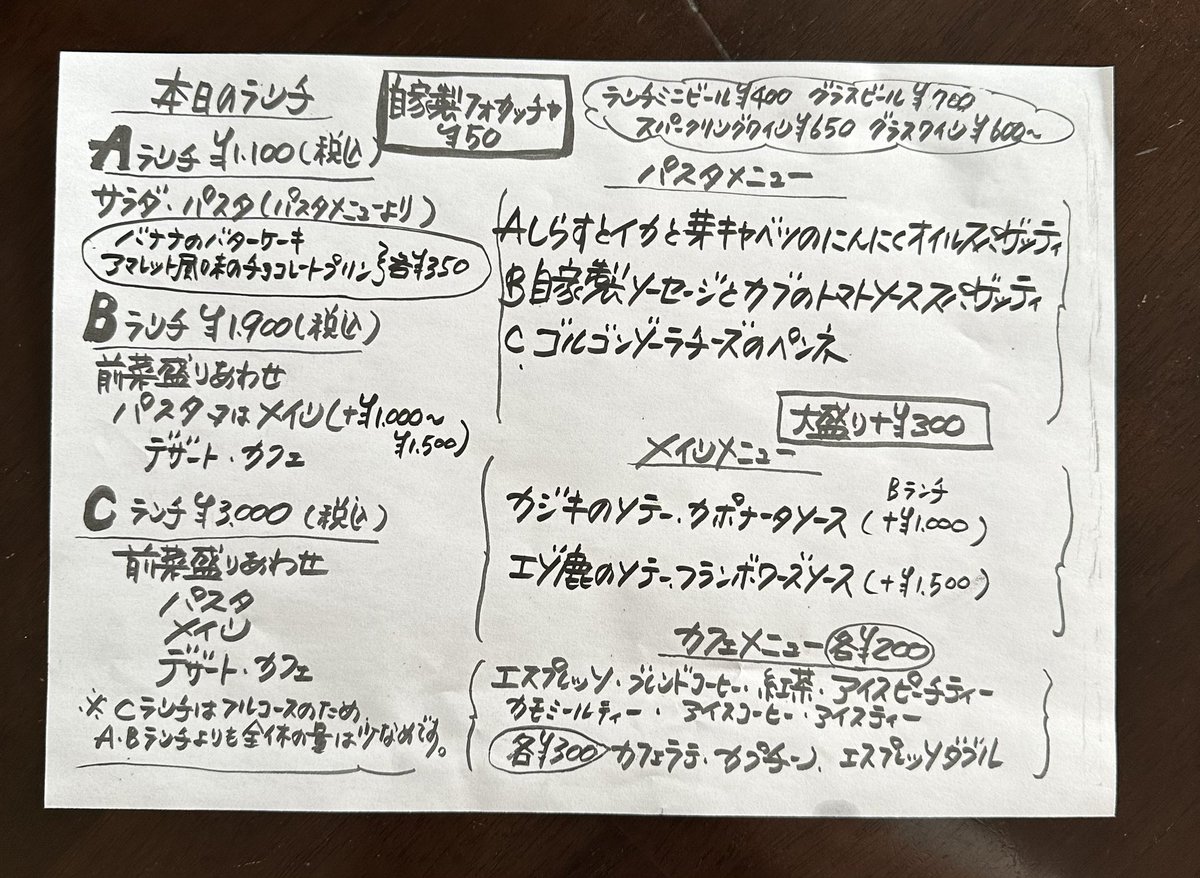 本日のランチ
Aランチ ¥1,100(税込)
サラダ・パスタ(パスタメニューより)
バナナのバターケーキ
アマレット風味のチョコレートプリン}各¥350
Bランチ ¥1,900(税込)
前菜盛りあわせ
パスタ又はメイン(+¥1,000~
¥1,500)
デザート・カフェ
Cランチ ¥3,000(税込)
前菜盛りあわせ
パスタ
メイン
デザート・カフェ
※Cランチはフルコースのため
A・Bランチよりも全体の量は少なめです。
自家製フォカッチャ
¥50
ランチミニビール¥400 グラスビール¥700
スパークリングワイン¥650 グラスワイン¥600~
パスタメニュー
Aしらすとイカと芽キャベツのにんにくオイルスパゲッティ
B自家製ソーセージとカブのトマトソーススパゲッティ
C ゴルゴンゾーラチーズのペンネ
大盛り+¥300
メインメニュー
Bランチ
カジキのソテー、カポナータソース(+¥1,000)
エゾ鹿のソテー、フランボワーズソース(+¥1,500)
カフェメニュー 各¥200
エスプレッソ・ブレンドコーヒー・紅茶・アイスピーチティー
カモミールティー・アイスコーヒー・アイスティー
各¥300 カフェラテ、カプチーノ、エスプレッソダブル